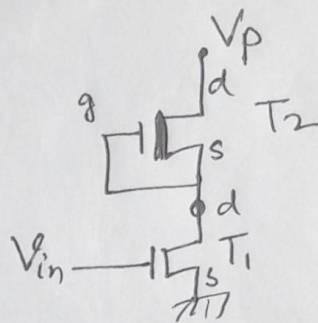 Vp
d
g
T2
s
d
Vin
T1
s